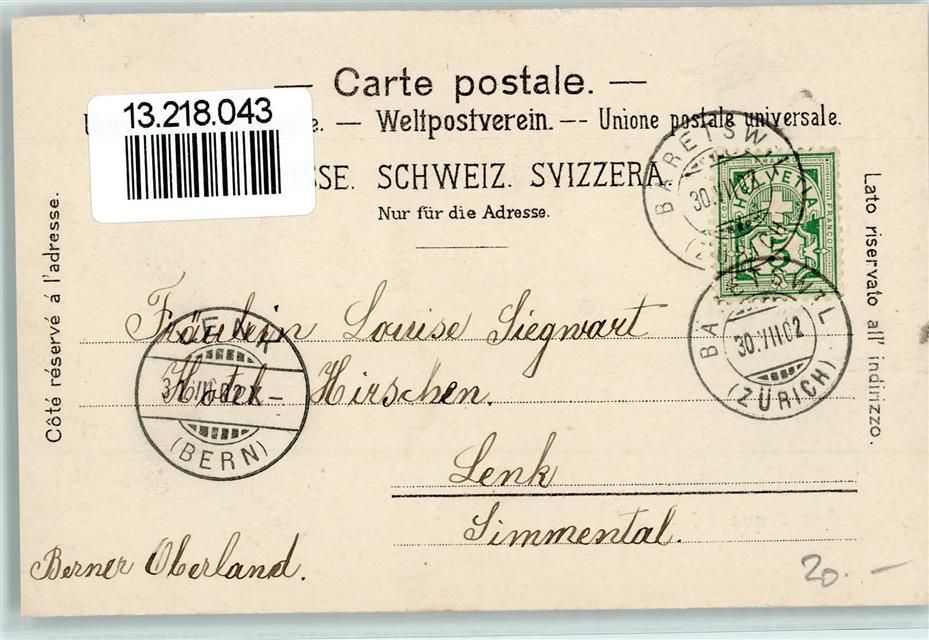 — Carte postale. —
13.218.043
— Weltpostverein. — Unione postale universale.
SCHWEIZ. SVIZZERA
Nur für die Adresse.
Côté réservé à l'adresse.
Lato riservato all' indirizzo.
BÄRETSWIL
30.VII.02
(ZÜRICH)
HELVETIA
FRANCO
5
BÄRETSWIL
30.VII.02
(ZÜRICH)
Fräulein Louise Siegwart
Hotel Hirschen.
LENK
(BERN)
Lenk
Simmental.
Berner Oberland.
20.—